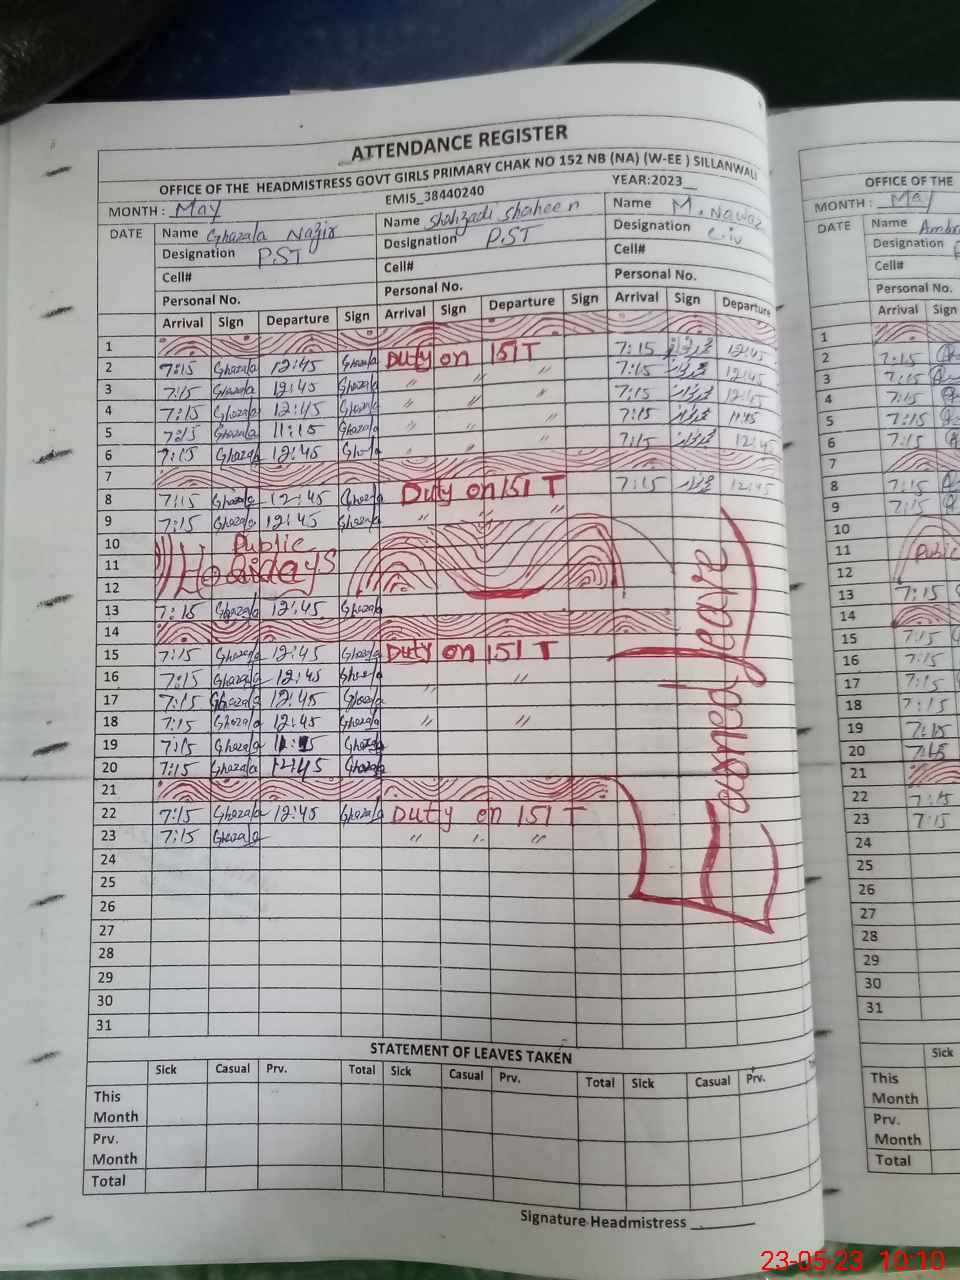 ATTENDANCE REGISTER
OFFICE OF THE HEADMISTRESS GOVT GIRLS PRIMARY CHAK NO 152 NB (NA) (W-EE ) SILLANWALI
EMIS_38440240 YEAR:2023__
MONTH : May
DATE Name Ghazala Nazir Name Shahzadi Shaheen Name M. Nawaz
Designation PST Designation PST Designation C.iv
Cell# Cell# Cell#
Personal No. Personal No. Personal No.
Arrival Sign Departure Sign Arrival Sign Departure Sign Arrival Sign Departure
1
2 7:15 Ghazala 12:45 Ghazala Duty on 151 T 7:15 12:45
3 7:15 Ghazala 12:45 Ghazala " " " 7:15 12:45
4 7:15 Ghazala 12:45 Ghazala " " " 7:15 12:45
5 7:15 Ghazala 11:15 Ghazala " " " 7:15 11:45
6 7:15 Ghazala 12:45 Ghazala " " " 7:15 12:45
7
8 7:15 Ghazala 12:45 Ghazala Duty on 151 T 7:15 12:45
9 7:15 Ghazala 12:45 Ghazala " " "
10 Public
11 Holidays
12
13 7:15 Ghazala 12:45 Ghazala
14
15 7:15 Ghazala 12:45 Ghazala Duty on 151 T
16 7:15 Ghazala 12:45 Ghazala " "
17 7:15 Ghazala 12:45 Ghazala
18 7:15 Ghazala 12:45 Ghazala " "
19 7:15 Ghazala Ghazala
20 7:15 Ghazala 12:45 Ghazala
21
22 7:15 Ghazala 12:45 Ghazala Duty on 151 T
23 7:15 Ghazala " " "
24
25
26
27
28
29
30
31
Earned leave
STATEMENT OF LEAVES TAKEN
Sick Casual Prv. Total Sick Casual Prv. Total Sick Casual Prv.
This Month
Prv. Month
Total
Signature Headmistress ______
OFFICE OF THE
MONTH : May
DATE Name
Designation
Cell#
Personal No.
Arrival Sign
1
2 7:15
3 7:15
4 7:15
5 7:15
6 7:15
7
8 7:15
9 7:15
10
11 Public
12
13 7:15
14
15 7:15
16 7:15
17 7:15
18 7:15
19 7:15
20 7:15
21
22 7:15
23 7:15
24
25
26
27
28
29
30
31
Sick
This Month
Prv. Month
Total
23-05-23 10:10